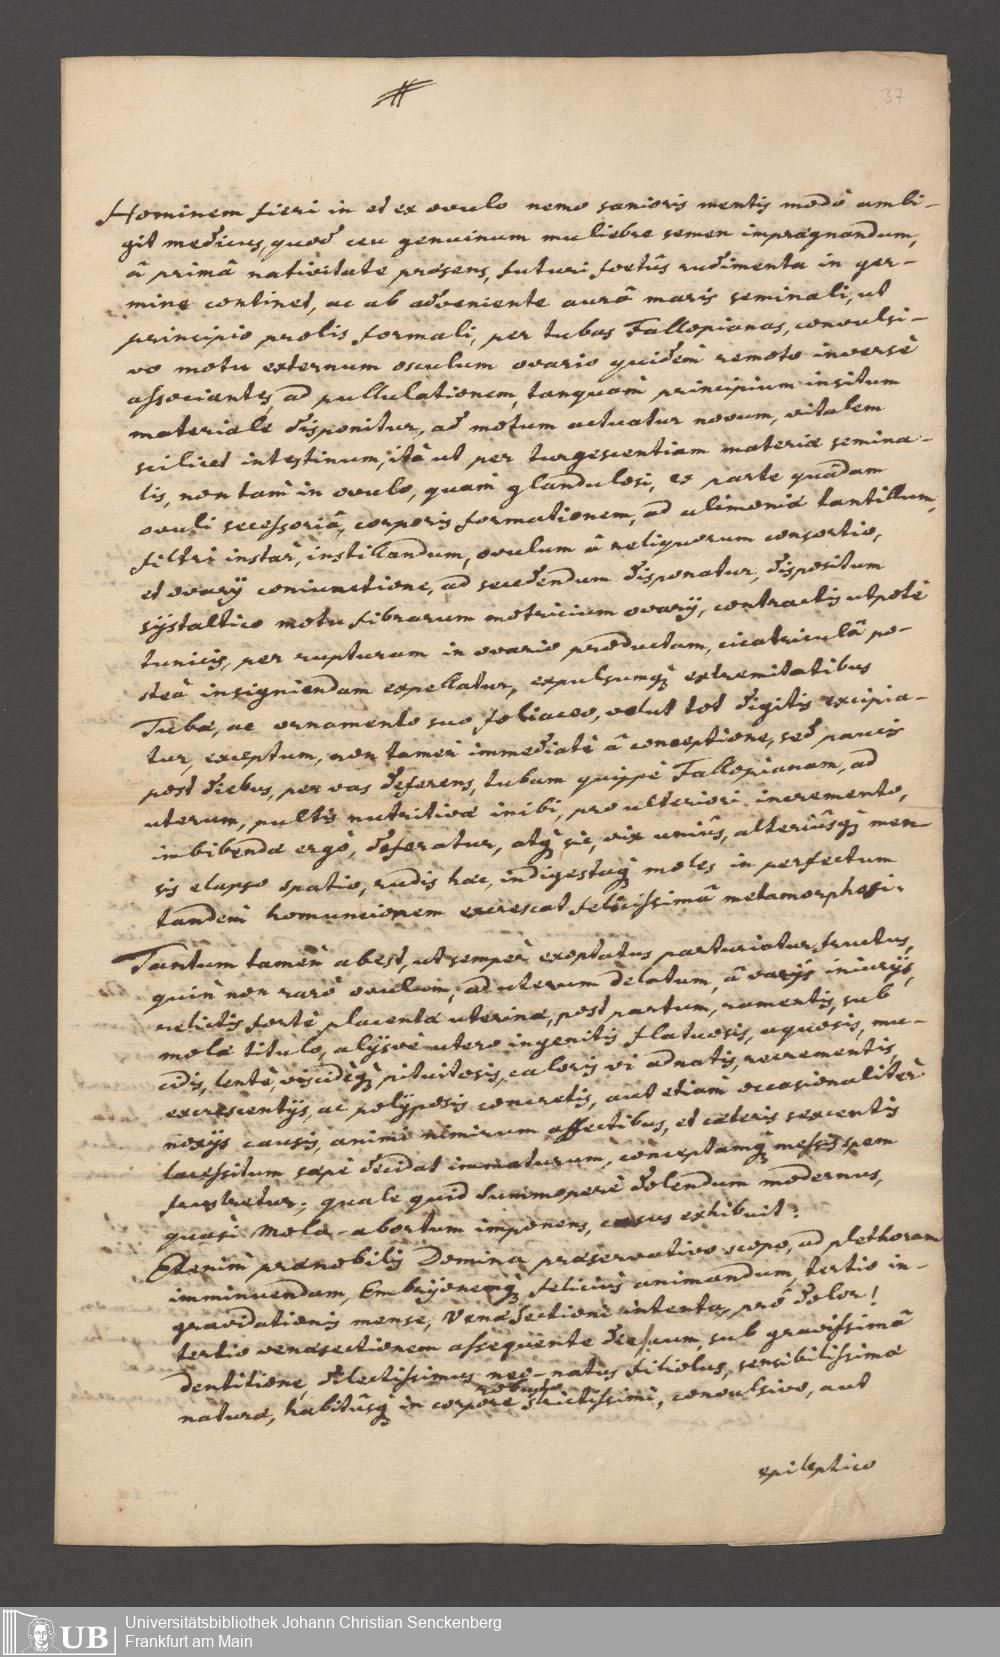 37
Hominem fieri in et ex ovulo nemo sanioris mentis modò ambi-
git medicus, quod ceu genuinum muliebre semen imprægnandum,
â primâ nativitate præsens, futuri foetûs rudimenta in ger-
mine continet, ac ab adveniente aurâ maris seminali, ut
principio prolis formali, per tubas Fallopianas, convulsi-
vo motu externum osculum ovario quidem remoto inversè
associantes, ad pullulationem, tanquam principium insitum
materiale disponitur, ad motum actuatur novum, vitalem
scilicet intestinum, ità ut per turgescentiam materiæ semina-
lis, non tam in ovulo, quam glandulosi, es parte quâdam
ovuli secessoriâ, corporis formationem, ad alimoniæ tantillum,
filtri instar, instillandum, ovulum â reliquorum consortio,
et ovarij coniunctione, ad secedendum disponatur, dispositum
systaltico motu fibrarum motricium ovarij, contractis utpotè
tunicis, per rupturam in ovario productam, cicatriculâ po-
steà insigniendam expellatur, expulsumq; extremitatibus
Tubæ, ac ornamento suo foliaceo, velut tot digitis excipia-
tur, exceptum, non tamen immediatè â conceptione, sed paucis
post diebus, per vas deferens, tubam quippè Fallopianam, ad
uterum, pultis nutritivæ inibi, pro ulteriori incremento,
imbibendæ ergò, deferatur, atq; sic, vix uniûs, alteriûsq; men-
sis elapso spatio, rudis hæc, indigestaq; moles in perfectum
tandem homuncionem excrescat felicissimâ metamorphosi.
Tantum tamen abest, ut semper exoptatus parturiatur fructus,
quin non rarò ovulum, ad uterum delatum, â varijs iniurijs,
relictis fortè placentæ uterinæ, post partum, ramentis, sub
molæ titulo, alijsve utero ingenitis flatuosis, aquosis, mu-
cidis, lentè, viscidèq; pituitosis, caloris vi adnatis, recrementis,
excrescentijs, ac polyposis concretis, aut etiam occasionalitèr
noxijs causis, animi nimirum affectibus, et cæteris sexcentis
lacessitum sæpè decidat immaturum, conceptamq; messis spem
frustretur; quale quid summoperè dolendum modernus,
quasi Mola-abortum imponens, casus exhibuit:
Etenim prænobilis Domina præservativo scopo, ad plethoram
imminuendam, Embryonemq; felicius animandum, tertio in-
gravidationis mense, Venæsectioni intenta, prô dolor!
tertio venæsectionem assequente die, cum, sub gravissimâ
dentitione, dilectissimus neo-natus filiolus, sensibilissimæ
naturæ, habitûsq; in corpore robusto strictissimi, convulsivo, aut
epileptico
UB
Universitätsbibliothek Johann Christian Senckenberg
Frankfurt am Main